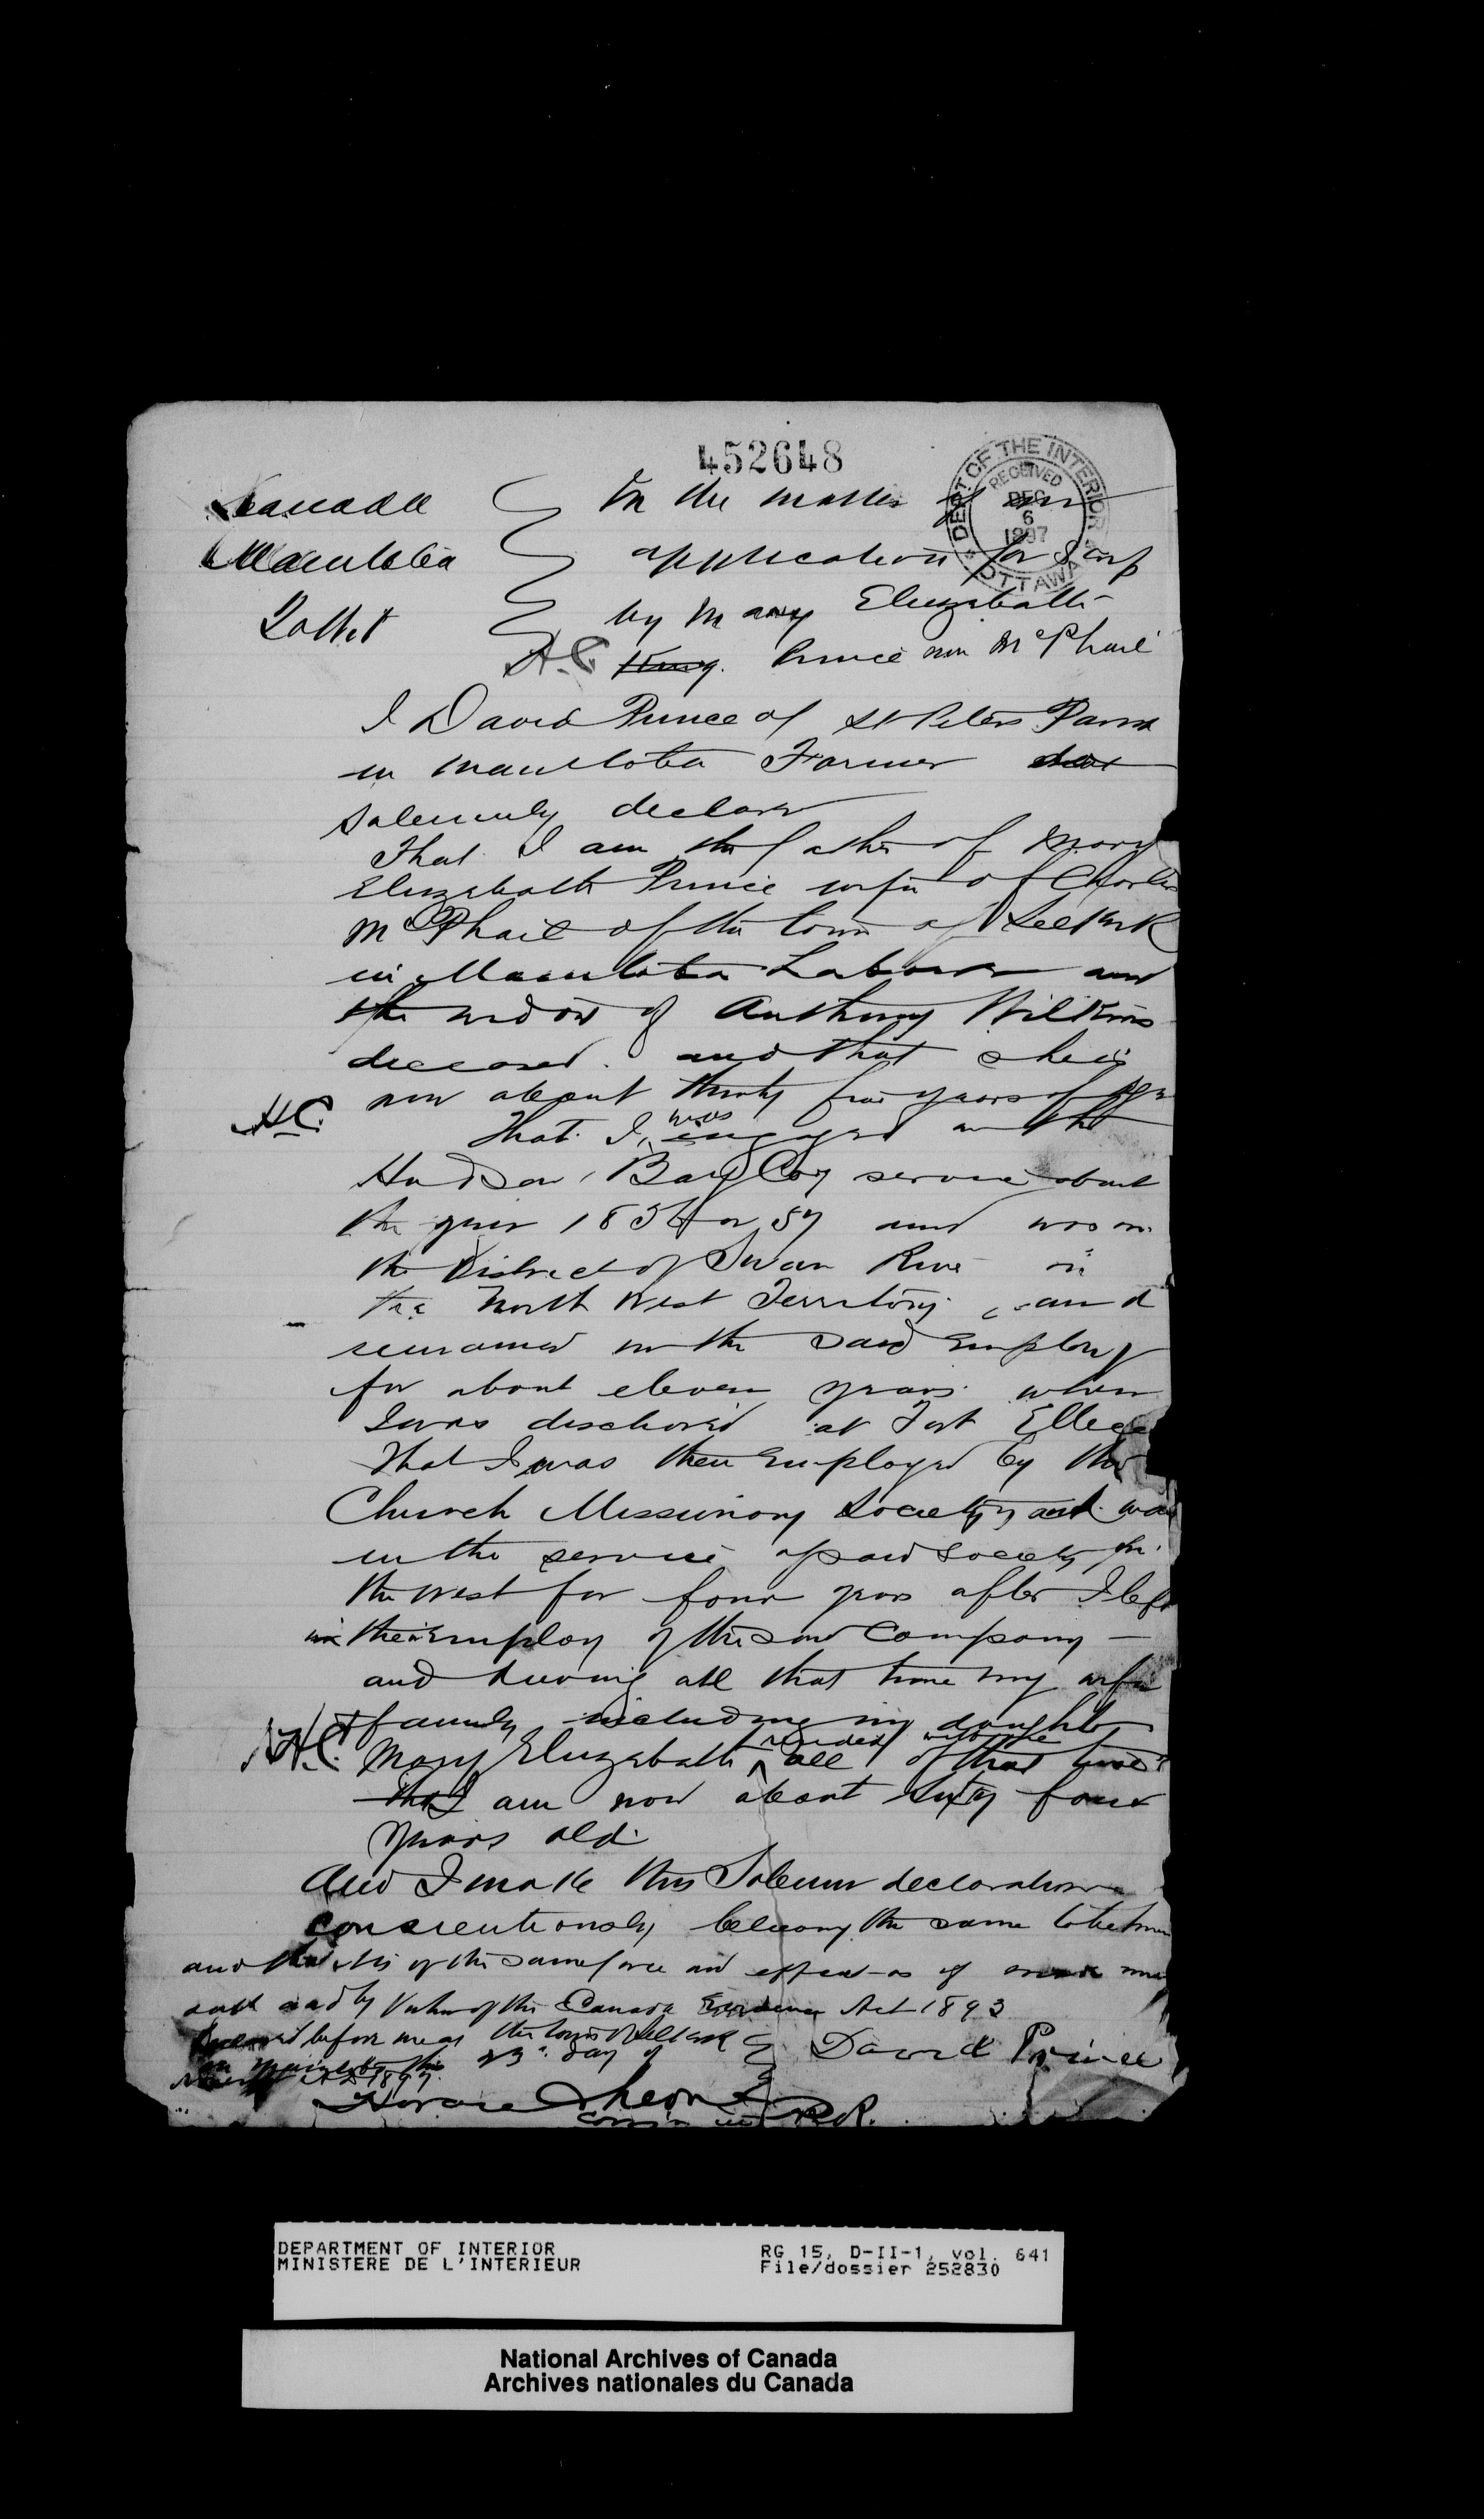 452648
DEPT. OF THE INTERIOR
RECEIVED
DEC
6
1897
OTTAWA
Canada
Manitoba
To Wit
In the matter of an
application for Scrip
by Mary Elizabeth
H.C. King. Prince now McPhail
I David Prince of St Peters Parish
in Manitoba Farmer do
solemnly declare
That I am the father of Mary
Elizabeth Prince wife of Charles
McPhail of the town of Selkirk
in Manitoba Laborer and
the widow of Anthony Wilkins
deceased. and that she is
now about thirty five years of Age
H.C.
That I was engaged in the
Hudson Bay Coy service about
the year 1856 or 57 and was in
the District of Swan River in
the North West Territory and
remained in the said employ
for about eleven years when
I was discharged at Fort Ellice
That I was then employed by the
Church Missionary Society and was
in the service of said Society in
the west for four years after I left
in the employ of the said Company —
and during all that time my wife
& family including my daughter
H.C. Mary Elizabeth resided with me all of that time
That I am now about sixty four
years old.
And I make this Solemn declaration
conscientiously believing the same to be true
and that it is of the same force and effect as if made under
oath and by Virtue of the Canada Evidence Act 1893
Declared before me at the town of Selkirk
in Manitoba this 23rd day of
A D 1897.
David Prince
Horace
B.R.
DEPARTMENT OF INTERIOR
MINISTERE DE L'INTERIEUR
RG 15, D-II-1, vol. 641
File/dossier 252830
National Archives of Canada
Archives nationales du Canada